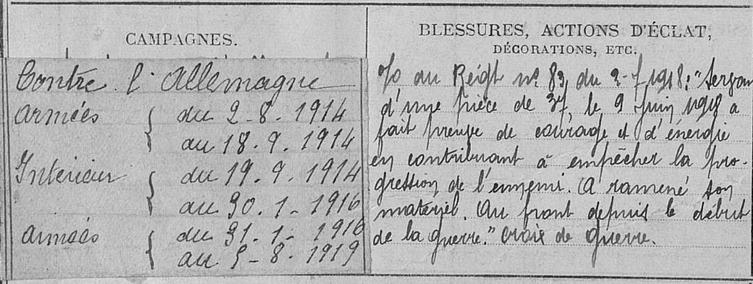 CAMPAGNES.
Contre l'Allemagne
Armées { du 2-8-1914
au 18.9.1914
Intérieur { du 19.9.1914
au 30.1-1916
Armées { du 31-1-1916
au 5-8-1919
BLESSURES, ACTIONS D'ÉCLAT,
DÉCORATIONS, ETC.
O/ au Reigt n° 83 du 2-7-1918: "Servan
d'une pièce de 37, le 9 Juin 1918 a
fait preuve de courage et d'énergie
en contribuant à empêcher la pro-
gression de l'ennemi. A ramené son
matériel. Au front depuis le début
de la guerre." Croix de guerre.